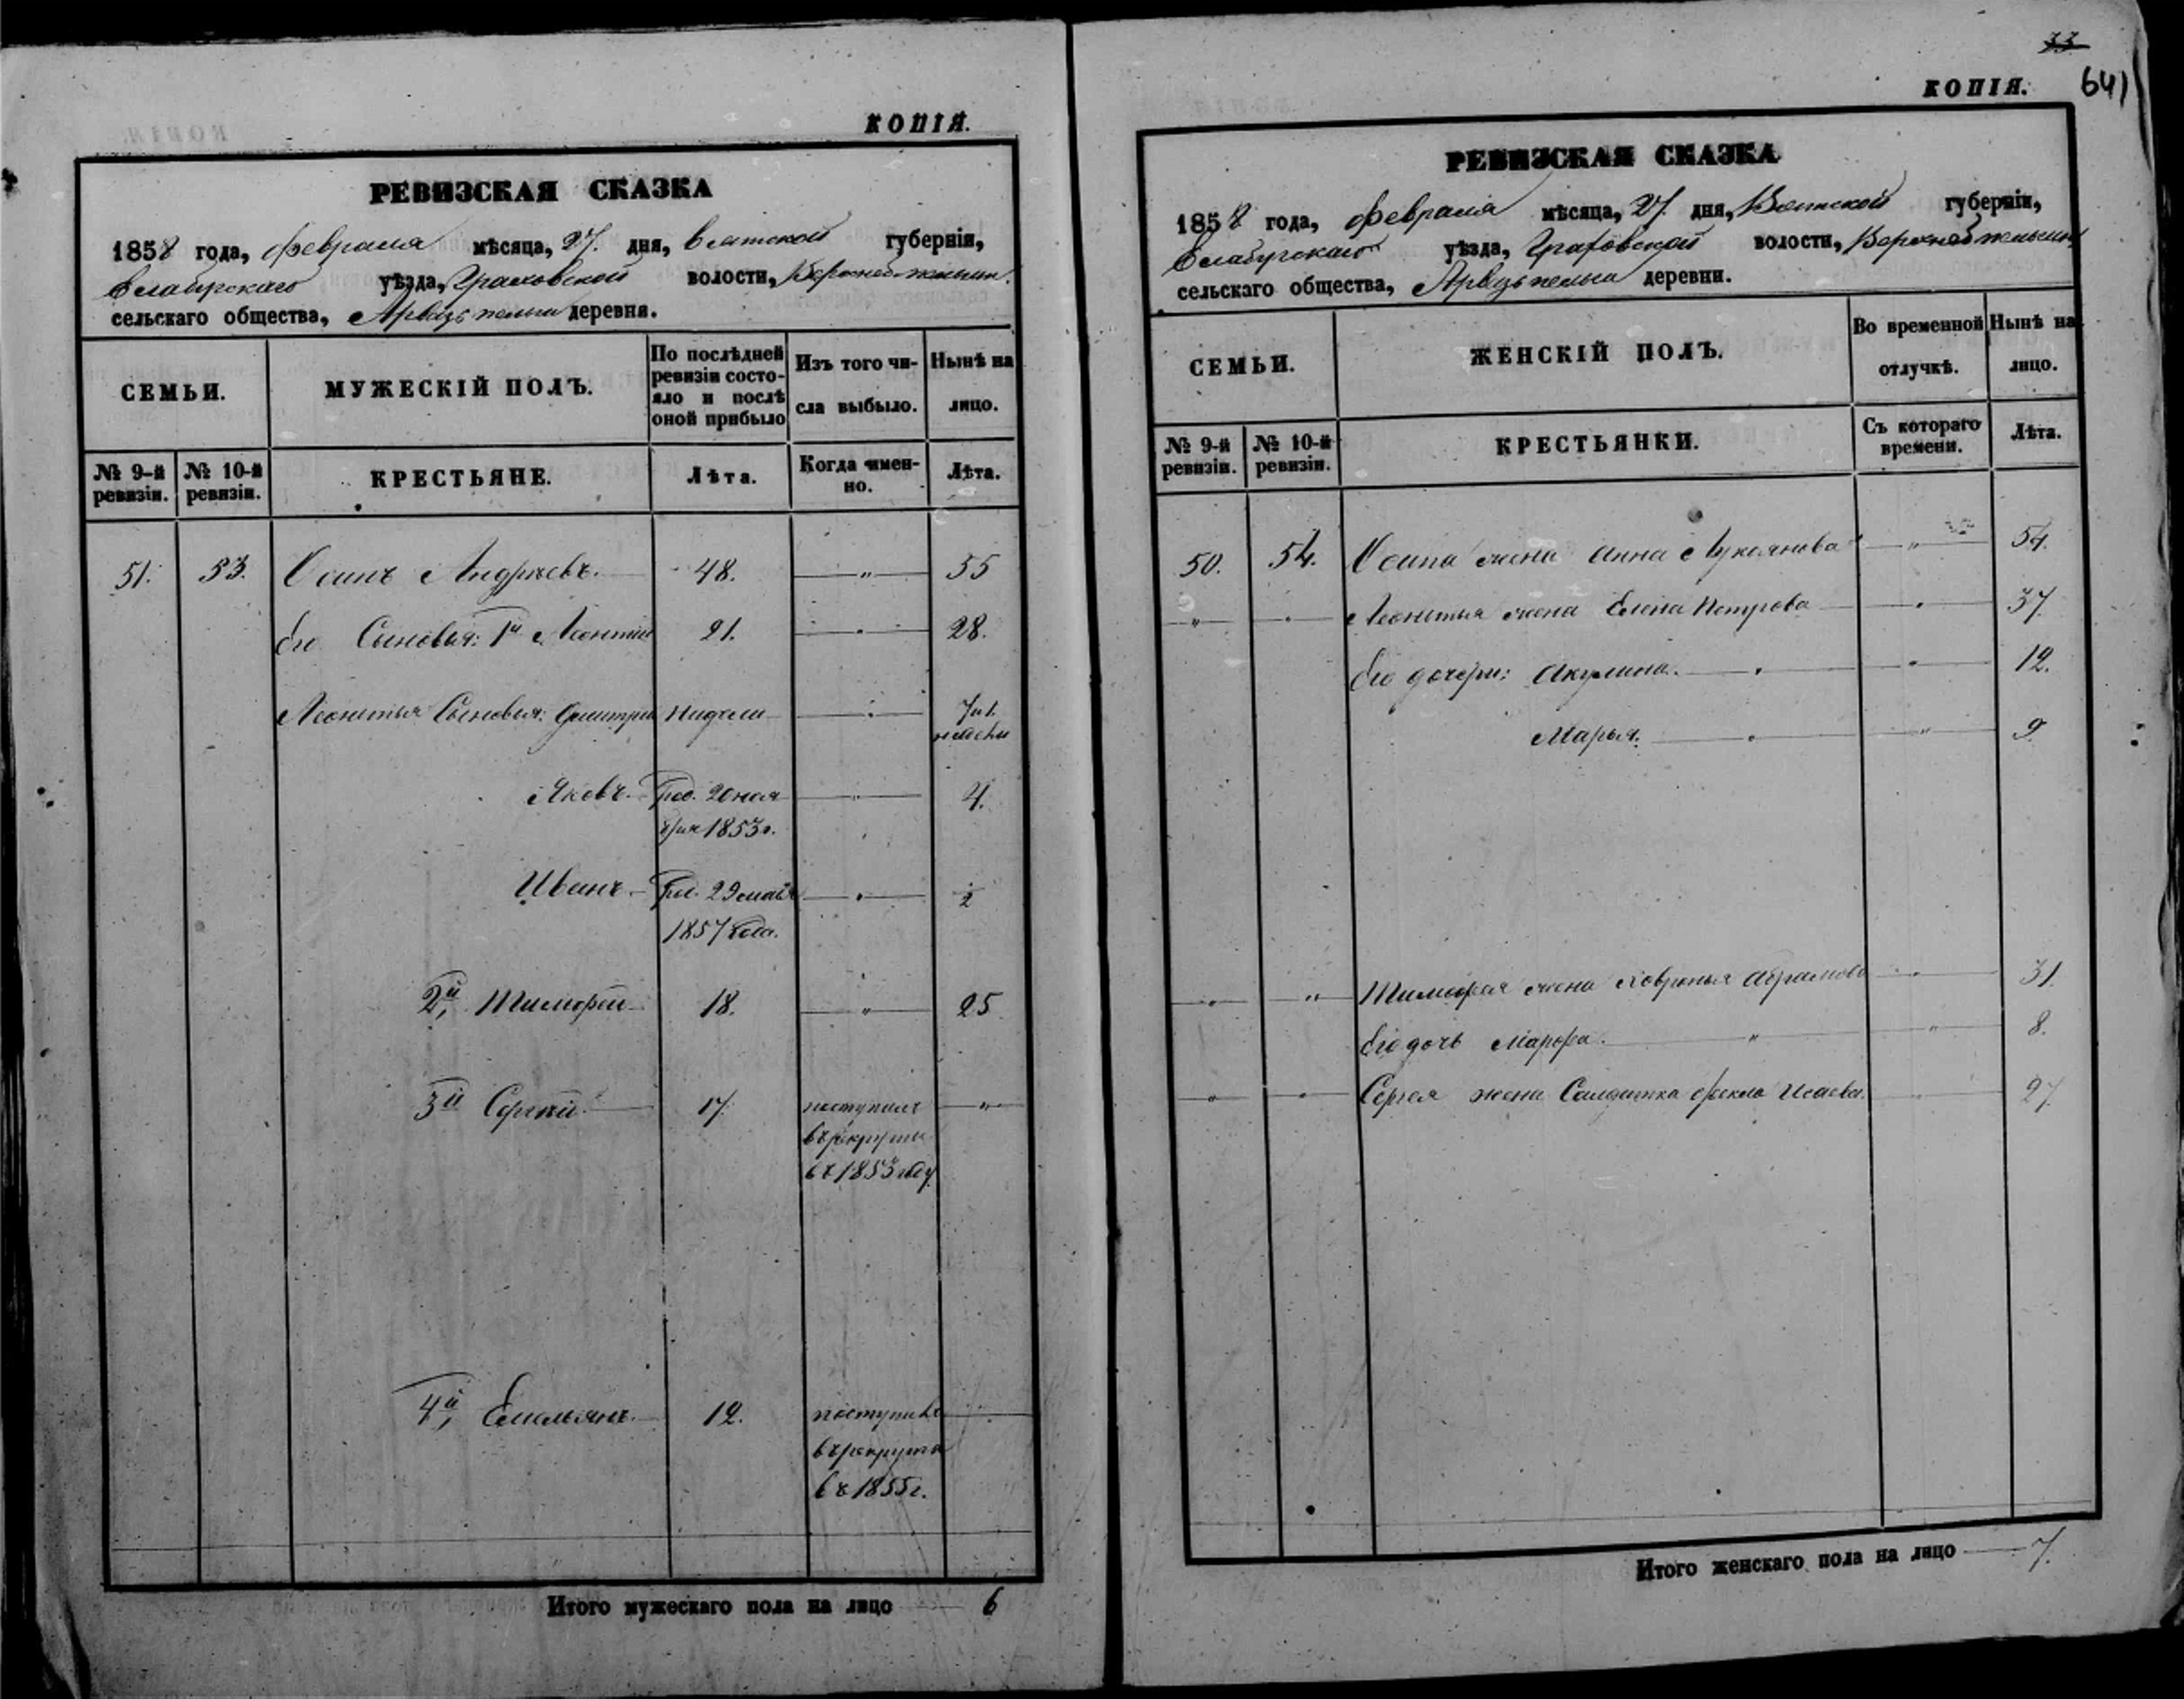 КОПІЯ.
РЕВИЗСКАЯ СКАЗКА
1858 года, февраля мѣсяца, 27. дня, Вятской губерніи,
Елабужскаго уѣзда, Граховской волости,
сельскаго общества, деревня.
СЕМЬИ.
МУЖЕСКІЙ ПОЛЪ.
По послѣдней ревизіи состояло и послѣ оной прибыло
Изъ того числа выбыло.
Нынѣ на лицо.
№ 9-й ревизіи.
№ 10-й ревизіи.
КРЕСТЬЯНЕ.
Лѣта.
Когда имен-
но.
Лѣта.
51. 53. Осипъ Андреевъ. 48. — " — 55
Его Сыновья: 1й Леонтій 21. — " — 28.
Леонтья Сыновья: Дмитрій недели — " —
Яковъ. Род. 20 ноя — " — 4.
бря 1853 г.
Иванъ Род. 29 мая — " — ½
1857 года.
2й, Тимофей 18. — " — 25
3й Сергей 17. поступилъ — " —
въ рекруты
въ 1853 году
4й, Емельянъ. 12. поступилъ
въ рекруты
въ 1855 г.
Итого мужескаго пола на лицо — 6
33
641
КОПІЯ.
РЕВИЗСКАЯ СКАЗКА
1858 года, февраля мѣсяца, 27. дня, Вятской губерніи,
Елабужскаго уѣзда, Граховской волости,
сельскаго общества, деревни.
СЕМЬИ.
ЖЕНСКІЙ ПОЛЪ.
Во временной отлучкѣ.
Нынѣ на лицо.
№ 9-й ревизіи.
№ 10-й ревизіи.
КРЕСТЬЯНКИ.
Съ котораго времени.
Лѣта.
50. 54. Осипа жена Анна Лукоянова — " — 54.
— " — — " — Леонтья жена Елена Петрова — " — 37.
Его дочери: Акулина. — " — 12.
Марья. — " — 9
— " — " Тимофея жена Ховронья Абрамова — " — 31.
Его дочь Марфа. — " — 8.
— " — — " — Сергея жена Солдатка Фекла Исаева. 27.
Итого женскаго пола на лицо — 7.